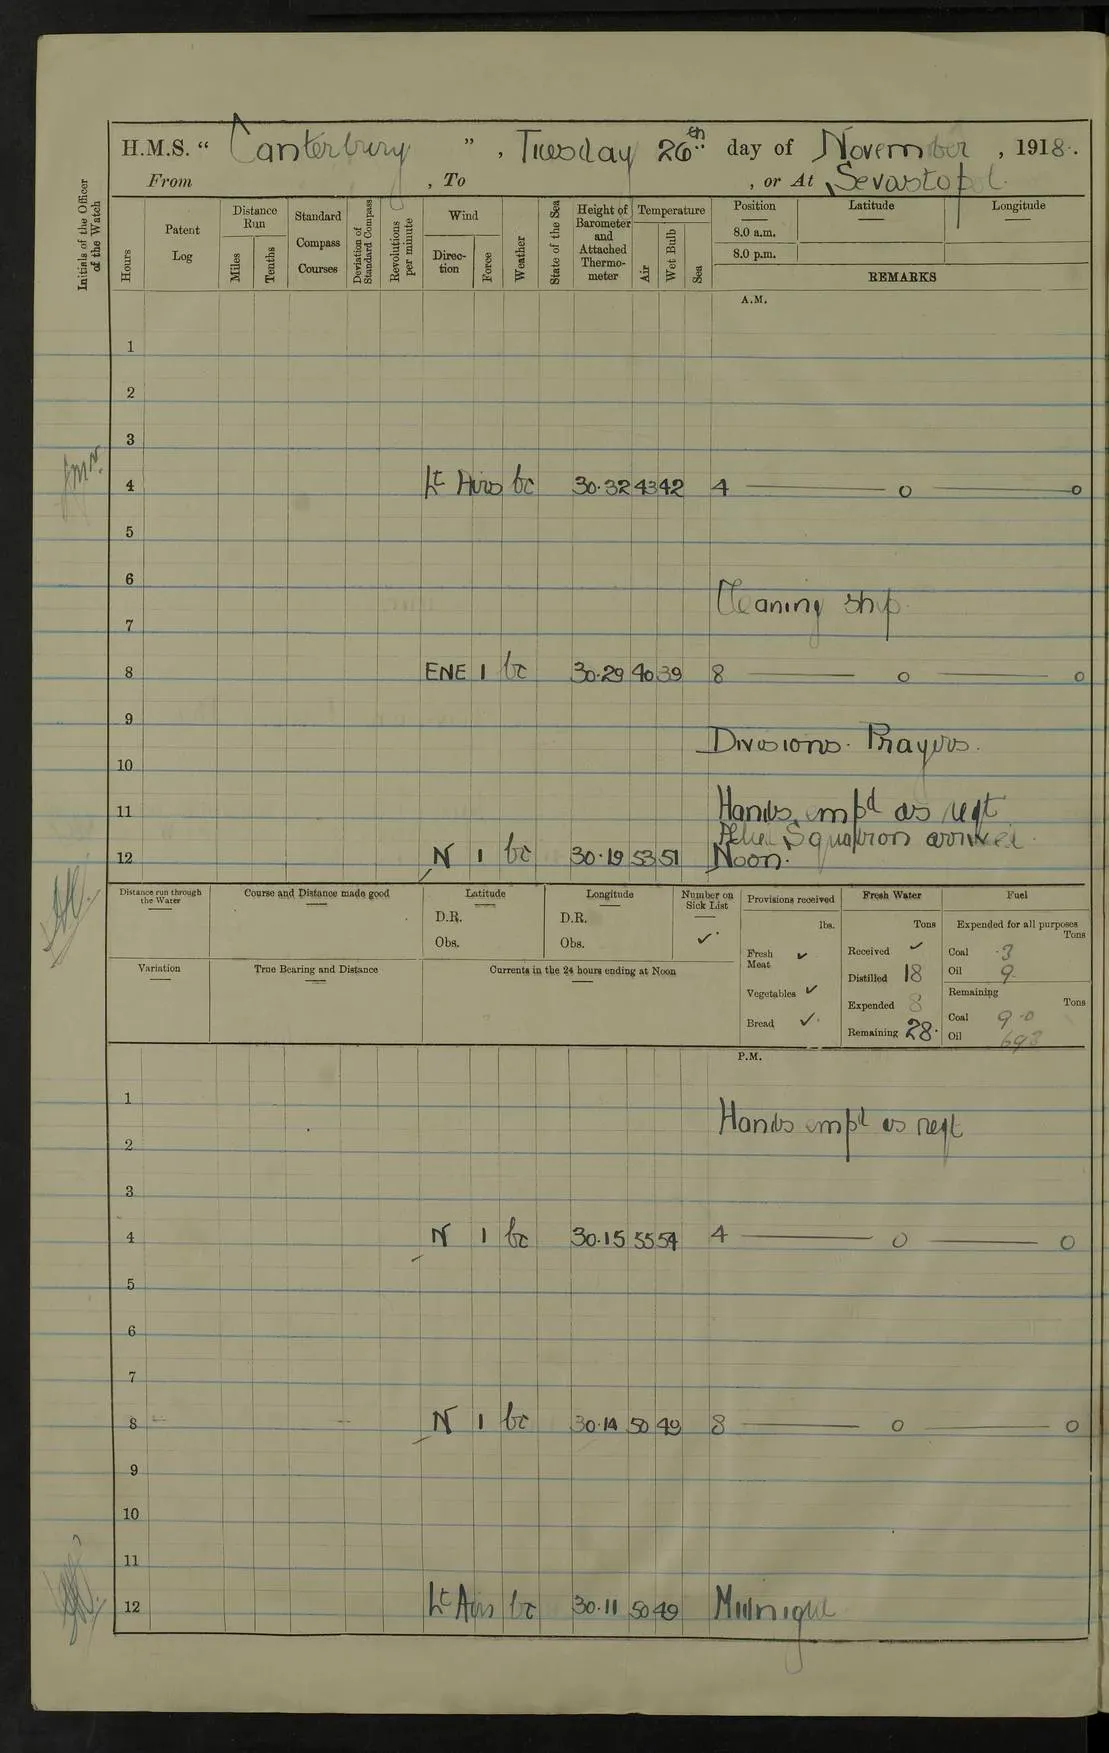 H.M.S. “ Canterbury ” , Tuesday 26th day of November , 1918.
From , To , or At Sevastopol.
Initials of the Officer of the Watch
Hours
Patent Log
Distance Run
Miles Tenths
Standard Compass Courses
Deviation of Standard Compass
Revolutions per minute
Wind
Direction Force
Weather
State of the Sea
Height of Barometer and Attached Thermometer
Temperature
Air Wet Bulb Sea
Position Latitude Longitude
8.0 a.m.
8.0 p.m.
REMARKS
A.M.
1
2
3
4 Lt Airs bc 30.32 43 42 4 — o — o
5
6
Cleaning ship
7
8 ENE 1 bc 30.29 40 39 8 — o — o
9
Divisions. Prayers.
10
11 Hands empd as reqt
Squadron arrived
12 N 1 bc 30.19 53 51 Noon.
Distance run through the Water
Course and Distance made good
Latitude
D.R.
Obs.
Longitude
D.R.
Obs.
Number on Sick List
✓
Provisions received
lbs.
Fresh Meat ✓
Vegetables ✓
Bread ✓
Fresh Water
Tons
Received ✓
Distilled 18
Expended 8
Remaining 28.
Fuel
Expended for all purposes
Tons
Coal .3
Oil 9.
Remaining
Tons
Coal 9.0
Oil 693
Variation
True Bearing and Distance
Currents in the 24 hours ending at Noon
P.M.
1
Hands empd as reqt
2
3
4 N 1 bc 30.15 55 54 4 — o — o
5
6
7
8 N 1 bc 30.14 50 49 8 — o — o
9
10
11
12 Lt Airs bc 30.11 50 49 Midnight